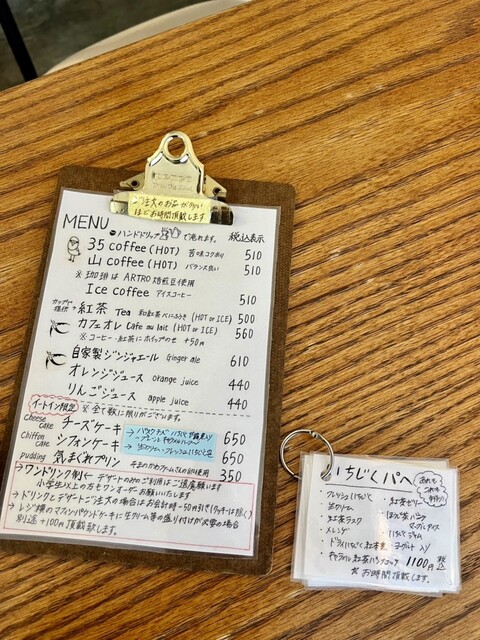 MENU
ハンドドリップで淹れます。 税込表示
35 coffee (HOT) 苦味コクあり 510
山 coffee (HOT) バランス良い 510
※ 珈琲は ARTRO焙煎豆使用
Ice coffee アイスコーヒー 510
紅茶 Tea 和紅茶べにふうき (HOT or ICE) 500
カフェオレ Cafe au lait (HOT or ICE) 560
※ コーヒー・紅茶にホイップのせ +50円
自家製ジンジャエール Ginger ale 610
オレンジジュース orange juice 440
りんごジュース apple juice 440
イートイン限定 ※ 全て数に限りがございます。
Cheese cake チーズケーキ 650
Chiffon cake シフォンケーキ 650
pudding 気まぐれプリン 350
→ワンドリンク制 デザートのみのご利用はご遠慮願います
小学生以上の方もワンオーダーお願いいたします
→ドリンクとデザートご注文の場合はお会計時-50円引き
→レジ横のマフィンパウンドケーキに生クリーム等の盛り付けが必要な場合
別途+100円頂戴致します。
いちじくパヘ
・フレッシュいちじく
・紅茶ゼリー
・生クリーム
・紅茶ラスク
・メレンゲ
・いちじくジャム
1100円 税込
※お時間頂戴します。